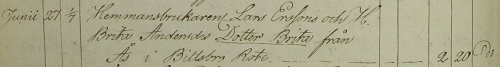 Junii 27 4/7 Hemmansbrukaren Lars Erssons och H.
Brita Andersdes Dotter Brita från
Ås i Billsbro Rote. 2 20